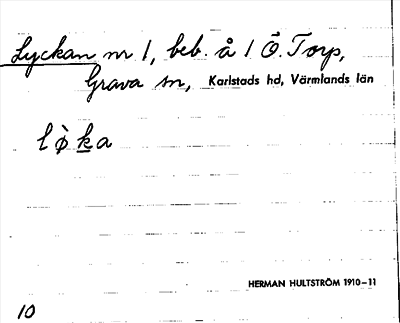 Lyckan nr 1, beb. å 1 Ö. Torp,
Grava sn, Karlstads hd, Värmlands län
l ø̀ k̲ a
HERMAN HULTSTRÖM 1910–11
10